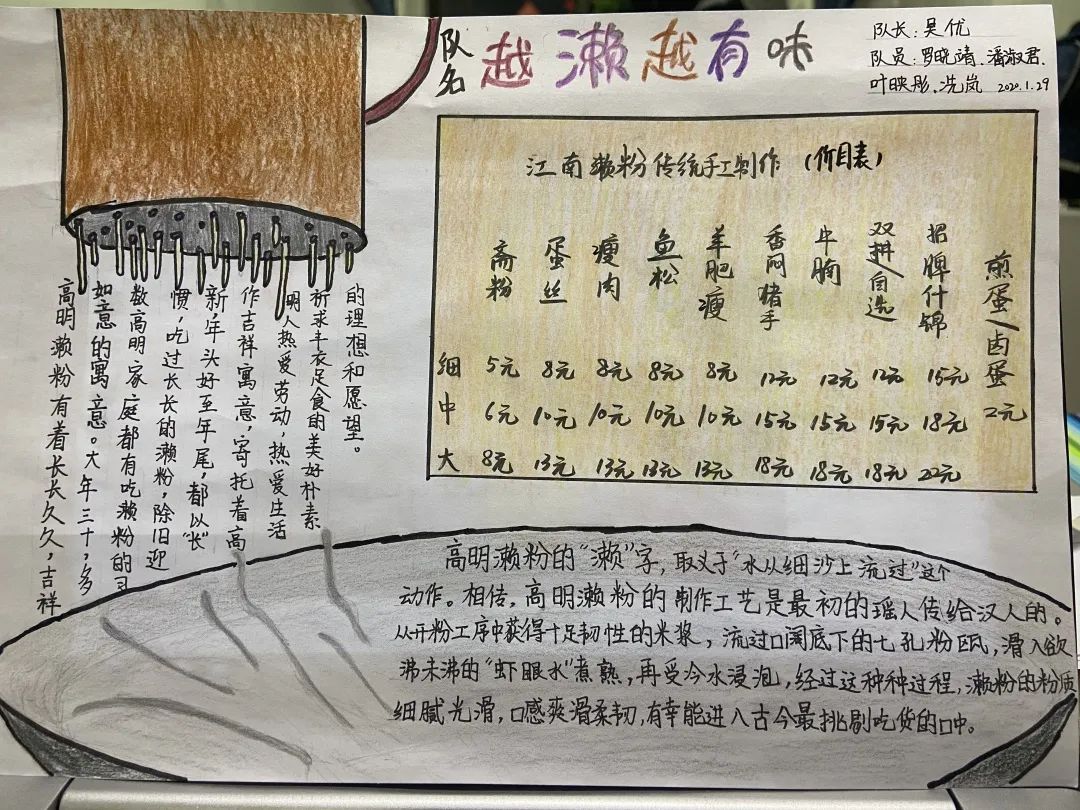 队名 越濑越有味
队长：吴优
队员：罗晓靖、潘淑君、
叶映彤、冼岚 2020.1.29
江南濑粉传统手工制作（价目表）
斋粉 蛋丝 瘦肉 鱼松 羊肥瘦 香闷猪手 牛腩 双拼/自选 招牌什锦 煎蛋/卤蛋
细 5元 8元 8元 8元 8元 12元 12元 12元 15元
中 6元 10元 10元 10元 10元 15元 15元 15元 18元 2元
大 8元 13元 13元 13元 13元 18元 18元 18元 22元
高明濑粉有着长长久久，吉祥
如意的寓意。大年三十，多
数高明家庭都有吃濑粉的习
惯，吃过长长的濑粉，除旧迎
新，年头好至年尾，都以“长”
作吉祥寓意，寄托着高
明人热爱劳动，热爱生活
祈求丰衣足食的美好朴素
的理想和愿望。
高明濑粉的“濑”字，取义于“水从细沙上流过”这个
动作。相传，高明濑粉的制作工艺是最初的瑶人传给汉人的。
从开粉工序中获得十足韧性的米浆，流过口阔底下的七孔粉瓯，滑入欲
沸未沸的“虾眼水”煮熟，再受冷水浸泡，经过这种种过程，濑粉的粉质
细腻光滑，口感爽滑柔韧，有幸能进入古今最挑剔吃货的口中。